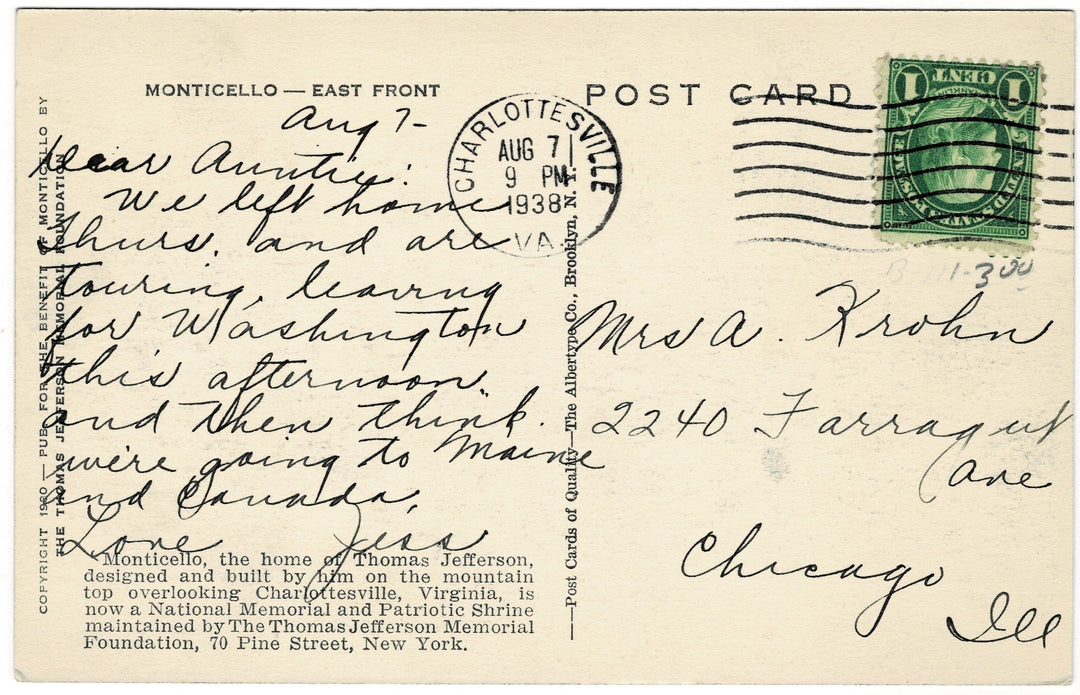 MONTICELLO — EAST FRONT
POST CARD
Aug 7-
Dear Auntie:
We left home
Thurs. and are
touring, leaving
for Washington
this afternoon.
and then think.
we're going to Maine
and Canada,
Love Jess
Monticello, the home of Thomas Jefferson,
designed and built by him on the mountain
top overlooking Charlottesville, Virginia, is
now a National Memorial and Patriotic Shrine
maintained by The Thomas Jefferson Memorial
Foundation, 70 Pine Street, New York.
COPYRIGHT 1920 — PUB. FOR THE BENEFIT OF MONTICELLO BY
THE THOMAS JEFFERSON MEMORIAL FOUNDATION
CHARLOTTESVILLE
AUG 7
9 PM
1938
VA.
—Post Cards of Quality—The Albertype Co., Brooklyn, N. Y.—
1 CENT 1
FRANKLIN
UNITED STATES POSTAGE
11-3 00
Mrs A. Krohn
2240 Farragut
Ave
Chicago
Ill